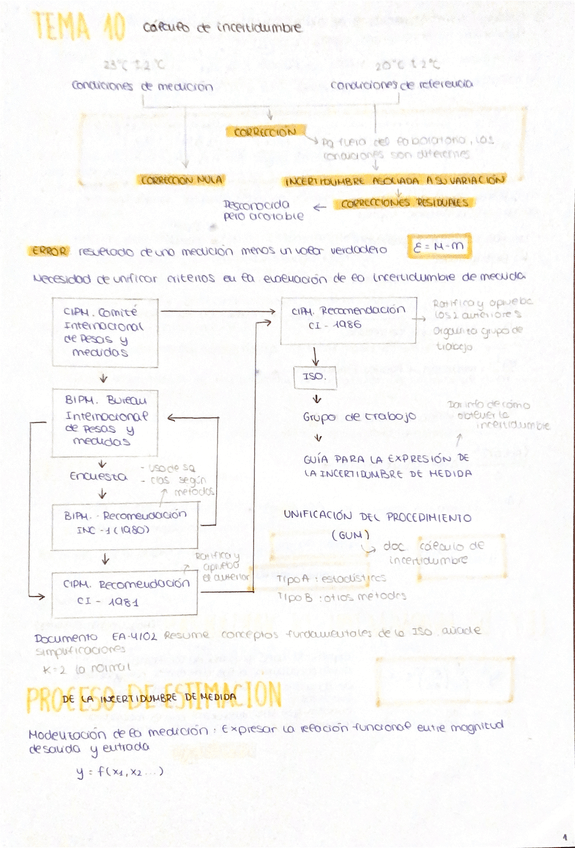 TEMA 10 Cálculo de incertidumbre
23°C ± 2°C
20°C ± 2°C
Condiciones de medición
condiciones de referencia
CORRECCIÓN
Pq fuera del laboratorio, las
condiciones son diferentes
CORRECCIÓN NULA
INCERTIDUMBRE ASOCIADA A SU VARIACIÓN
Desconocida
pero acotable
← CORRECCIONES RESIDUALES
ERROR resultado de una medición menos un valor verdadero
E = M-m
Necesidad de unificar criterios en la evaluación de la incertidumbre de medida
CIPM. Comité
Internacional
de Pesas y
medidas
CIPM. Recomendación
CI - 1986
Ratifica y aprueba
los 2 anteriores
Organiza grupo de
trabajo
ISO.
BIPM. Bureau
Internacional
de Pesas y
medidas
Grupo de trabajo
info de cómo
obtener la
incertidumbre
GUÍA PARA LA EXPRESIÓN DE
LA INCERTIDUMBRE DE MEDIDA
Encuesta
- clas según
métodos
BIPM. Recomendación
INC - 1 (1980)
UNIFICACIÓN DEL PROCEDIMIENTO
(GUM)
doc cálculo de
incertidumbre
Ratifica y
aprueba
el anterior
CIPM. Recomendación
CI - 1981
Tipo A : estadísticos
Tipo B : otros métodos
Documento EA-4/02 Resume conceptos fundamentales de la ISO añade
simplificaciones
K=2 lo normal
PROCESO DE ESTIMACIÓN
DE LA INCERTIDUMBRE DE MEDIDA
Modelización de la medición : Expresar la relación funcional entre magnitud
de salida y entrada
y = f(x1, x2 ...)
1